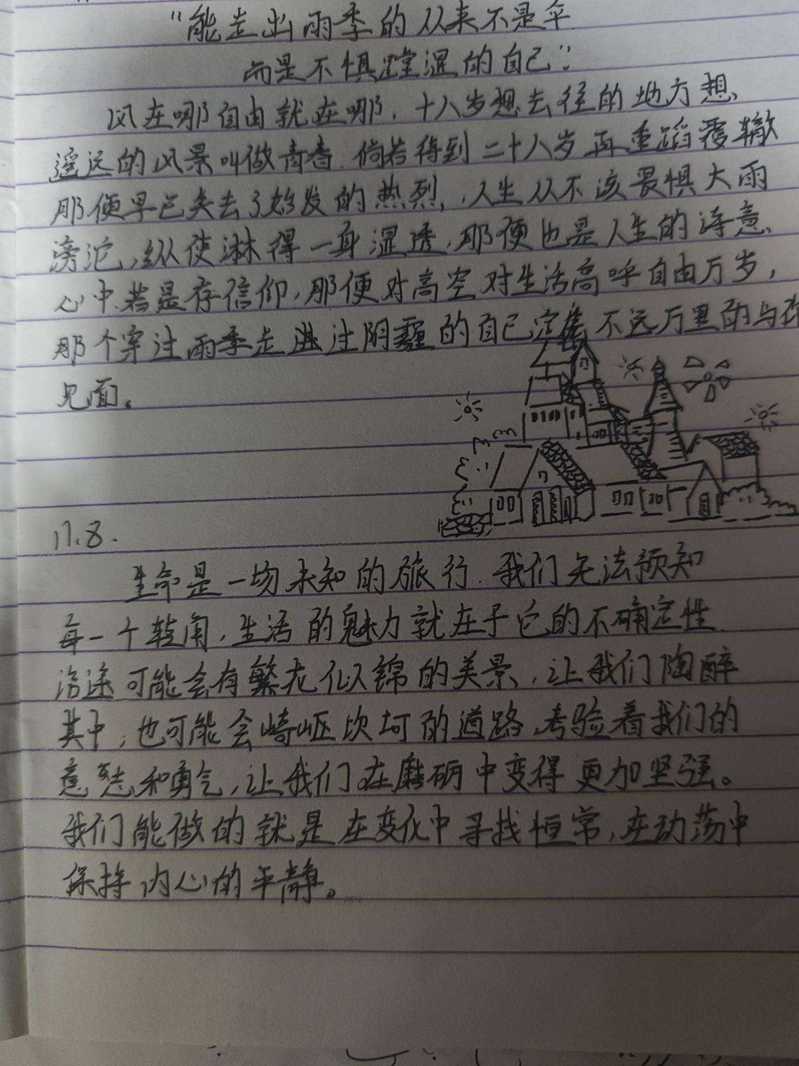 “能走出雨季的从来不是伞
而是不惧淋湿的自己”
风在哪自由就在哪，十八岁想去往的地方想、
遥远的风景叫做青春 倘若得到二十八岁再重蹈覆辙
那便早已失去了始发的热烈，人生从不该畏惧大雨
滂沱，纵使淋得一身湿透，那便也是人生的诗意、
心中若是存信仰，那便对高空对生活高呼自由万岁，
那个穿过雨季走过阴霾的自己定集不远万里的与你
见面。
11.8.
生命是一场未知的旅行．我们无法预知
每一个转角，生活的魅力就在于它的不确定性
沿途可能会有繁花似锦的美景，让我们陶醉
其中，也可能会崎岖坎坷的道路，考验着我们的
意志和勇气，让我们在磨砺中变得更加坚强。
我们能做的就是在变化中寻找恒常，在动荡中
保持内心的平静。